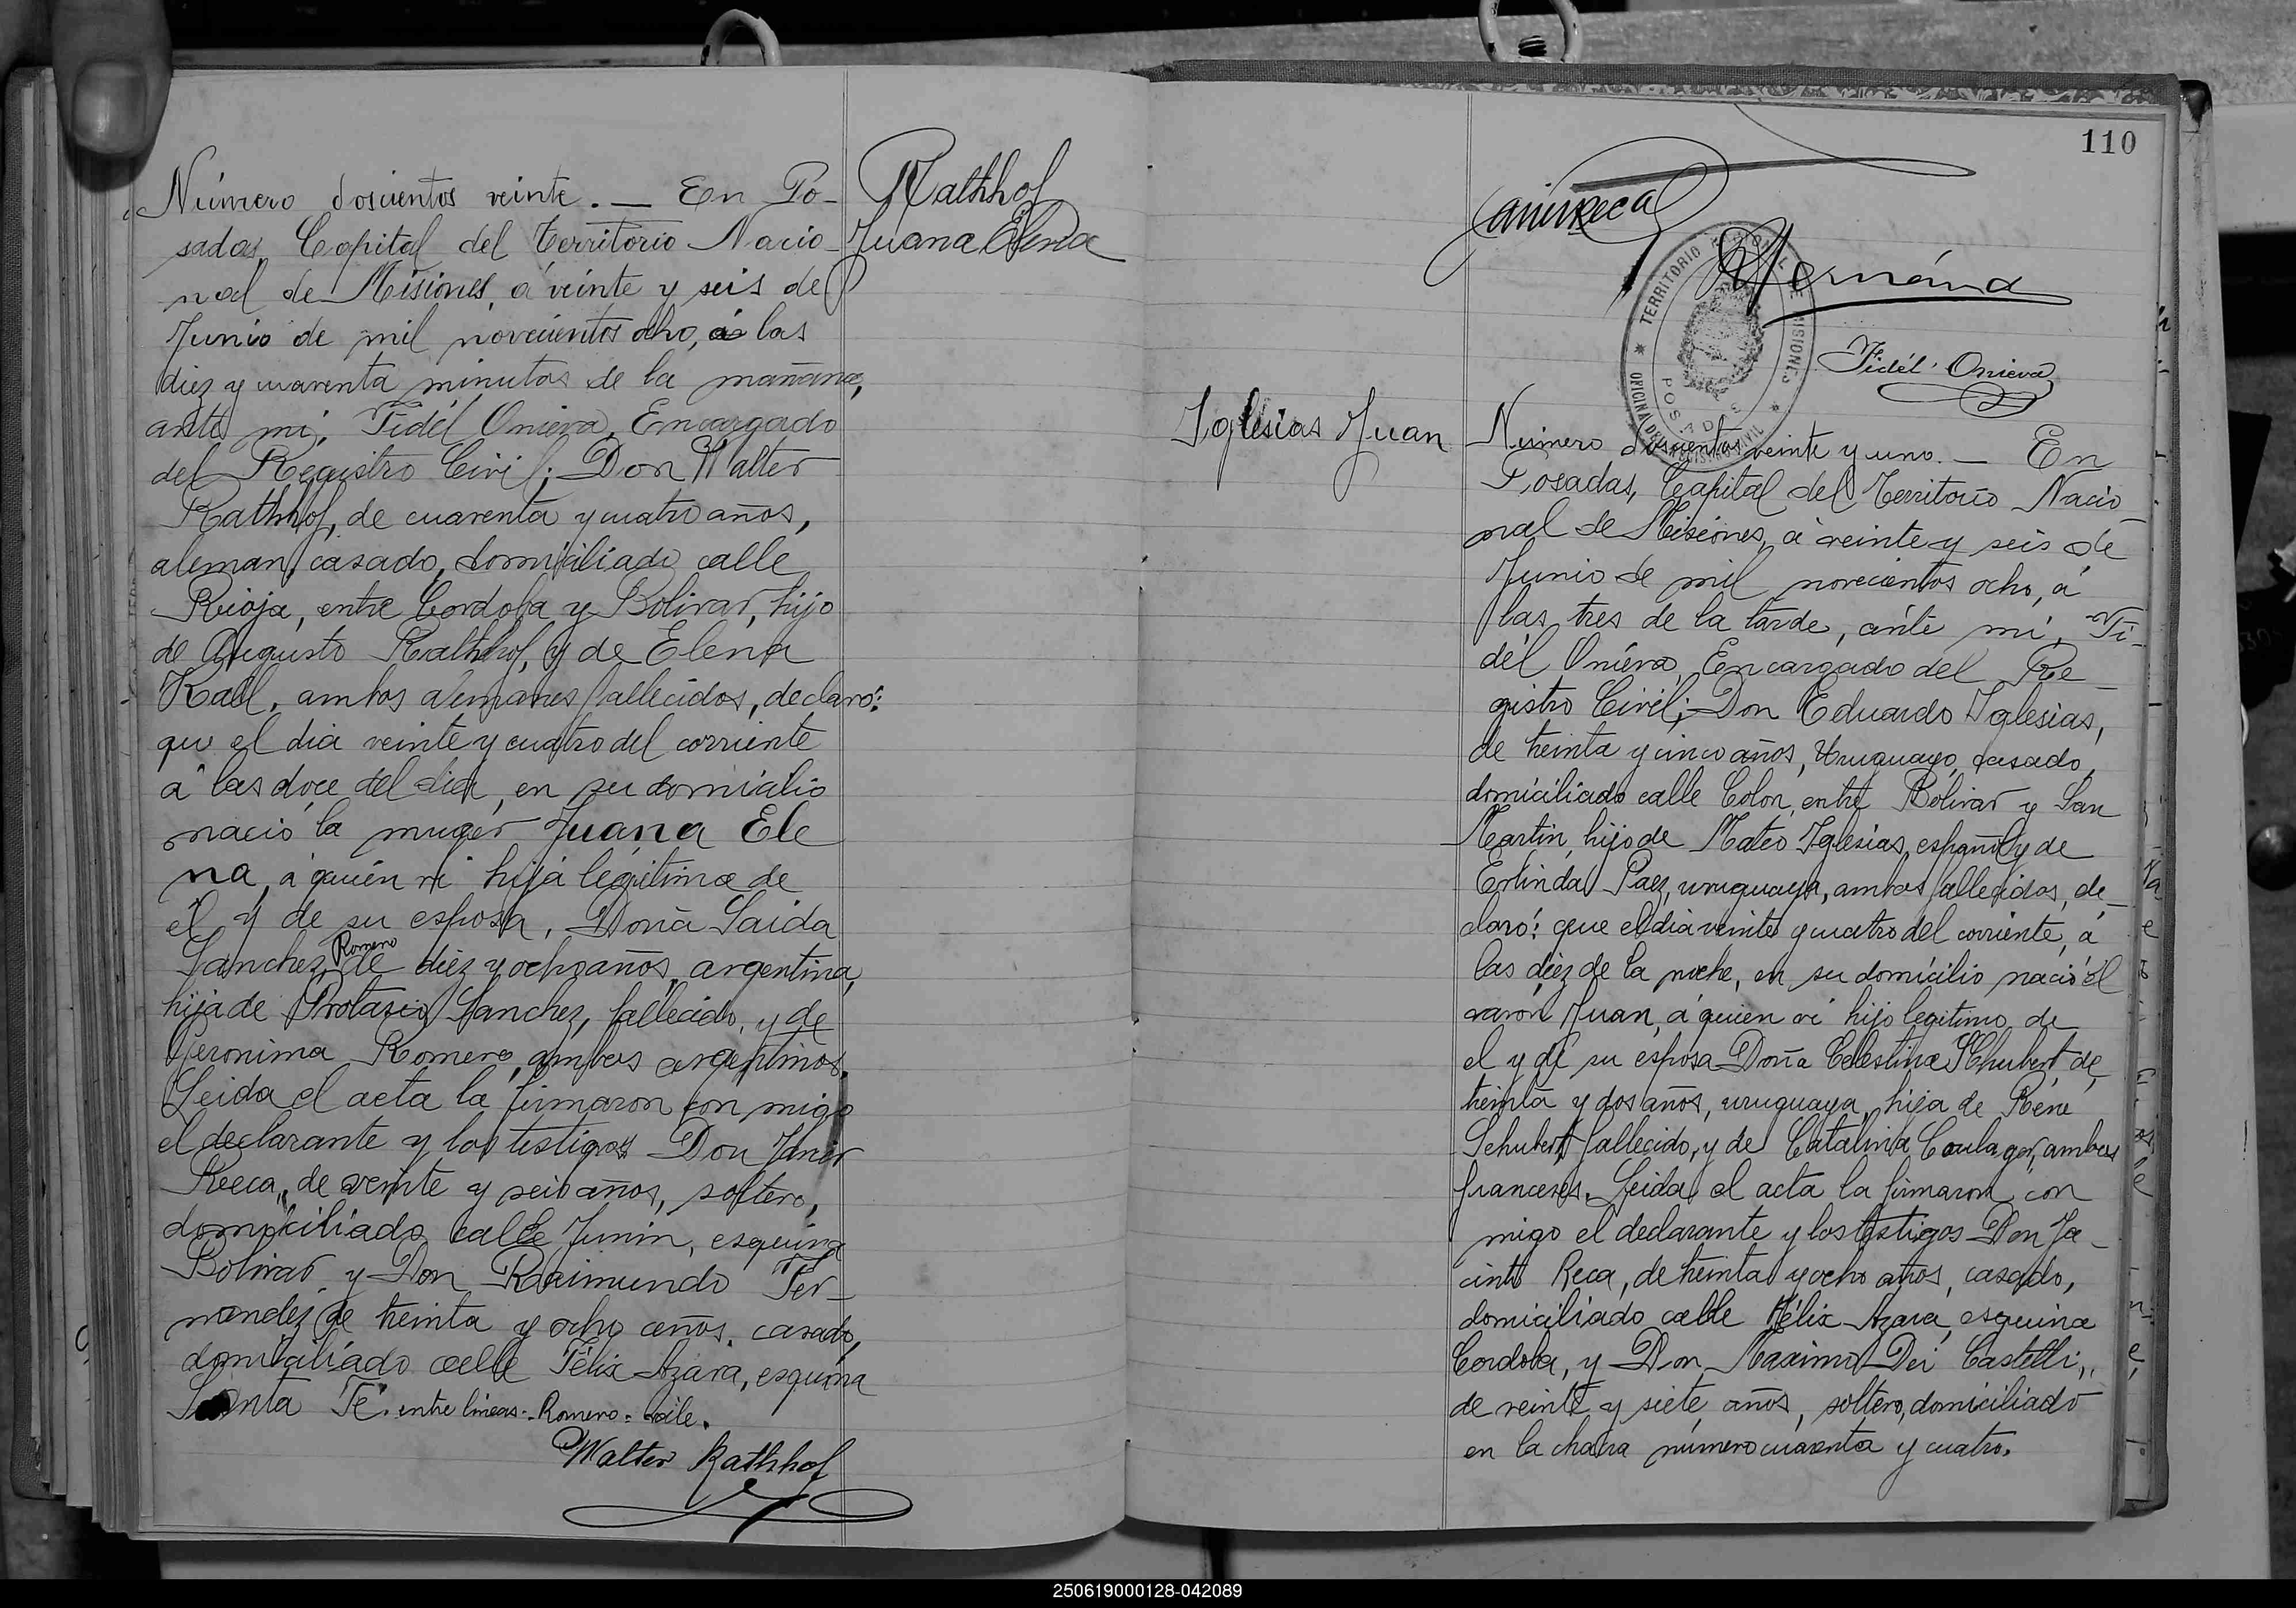 Número doscientos veinte. — En Po-
sadas, Capital del Territorio Nacio-
nal de Misiones, á veinte y seis de
Junio de mil novecientos ocho, á las
diez y cuarenta minutos de la mañana,
ante mi, Fidél Onieva, Encargado
del Registro Civil; Don Walter
Rathhof, de cuarenta y cuatro años,
aleman, casado, domiciliado calle
Rioja, entre Cordoba y Bolivar, hijo
de Augusto Rathhof, y de Elena
Kall, ambos alemanes fallecidos, declaró:
que el dia veinte y cuatro del corriente
á las doce del dia, en su domicilio
nació la muger Juana Ele
na, á quien vi hija legitima de
él y de su esposa, Doña Saida
Sanchez Romero de diez y ocho años, argentina,
hija de Protasio Sanchez, fallecido, y de
Geronima Romero, ambos argentinos.
Leida el acta la firmaron con migo
el declarante y los testigos Don Janier
Reca, de veinte y seis años, soltero,
domiciliado calle Junin, esquina
Bolivar y Don Raimundo Fer-
nandez de treinta y ocho años, casado,
domiciliado calle Félix Azara, esquina
Santa Fé. entre lineas: Romero: vale.
Walter Rathhof
Rathhof
Juana Elena
110
Reca
Hernánd
TERRITORIO NACIONAL DE MISIONES
OFICINA DEL REGISTRO CIVIL
POSADAS
Fidél Onieva
Iglesias Juan
Número doscientos veinte y uno. — En
Posadas, Capital del Territorio Nacio
nal de Misiones, á veinte y seis de
Junio de mil novecientos ocho, á
las tres de la tarde, ánte mi, Fi-
dél Onieva, Encargado del Re-
gistro Civil; Don Eduardo Iglesias,
de treinta y cinco años, Uruguayo, casado,
domiciliado calle Colon, entre Bolivar y San
Martin, hijo de Mateo Iglesias, español y de
Erlinda Paez, uruguaya, ambos fallecidos, de-
claró: que el dia veinte y cuatro del corriente, á
las diez de la noche, en su domicilio nació él
varón Juan, á quien vi hijo legitimo de
el y de su esposa Doña Celestina Schubert de
treinta y dos años, uruguaya, hija de Réne
Schubert, fallecido, y de Catalina Coulager, ambos
franceses. Leida el acta la firmaron con
migo el declarante y los testigos Don Ja-
cinto Reca, de treinta y ocho años, casado,
domiciliado calle Félix Azara, esquina
Cordoba, y Don Maximo Dei Castelli,
de veinte y siete años, soltero, domiciliado
en la chacra número cuarenta y cuatro.
250619000128-042089